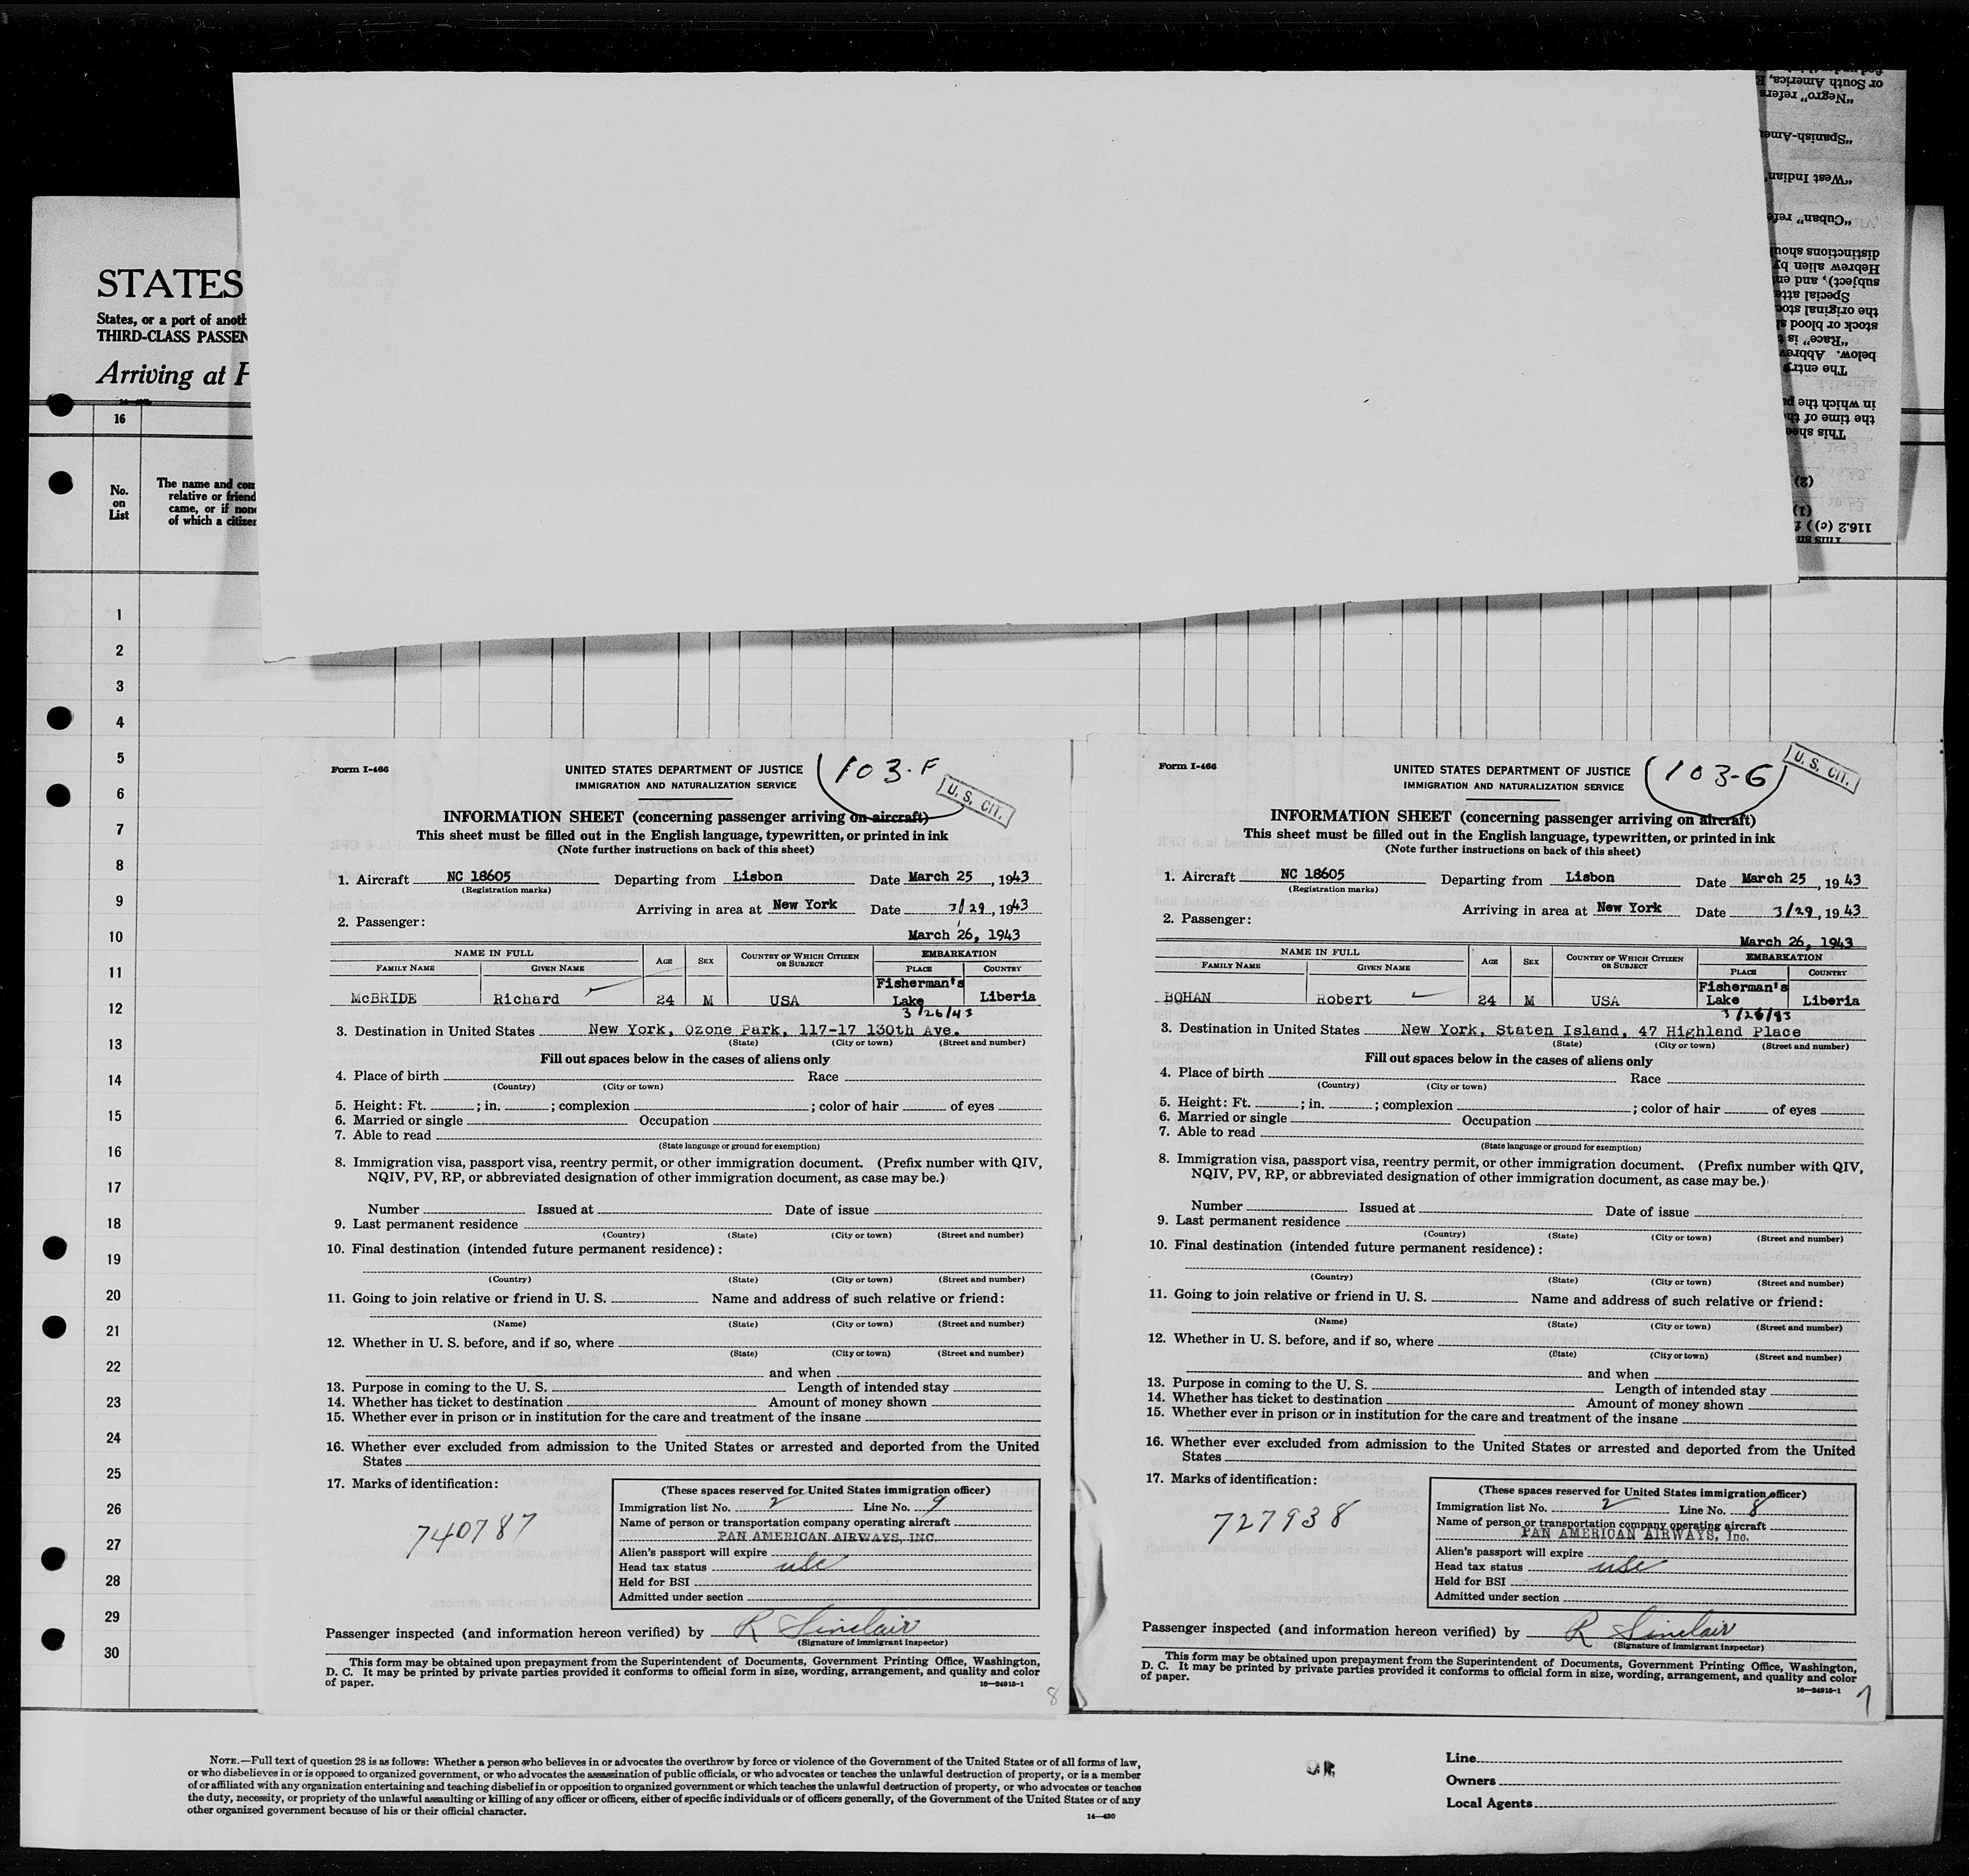 STATES
States, or a port of anoth
THIRD-CLASS PASSEN
Arriving at P
16
No.
on
List
The name and com
relative or friend
came, or if none
of which a citizen
1
2
3
4
5
6
7
8
9
10
11
12
13
14
15
16
17
18
19
20
21
22
23
24
25
26
27
28
29
30
or South America, E
"Negro" refers
"Spanish-Amer
"West Indian"
"Cuban" refe
distinctions shoul
Hebrew alien by
subject), and en
Special atte
the original stoc
stock or blood s
"Race" is t
below. Abbrev
The entry
in which the pa
the time of th
This shee
(2)
(1)
116.2 (c) ) f
Form I-466
UNITED STATES DEPARTMENT OF JUSTICE
IMMIGRATION AND NATURALIZATION SERVICE
103-F
U. S. CIT.
INFORMATION SHEET (concerning passenger arriving on aircraft)
This sheet must be filled out in the English language, typewritten, or printed in ink
(Note further instructions on back of this sheet)
1. Aircraft NC 18605 Departing from Lisbon Date March 25, 1943
(Registration marks)
Arriving in area at New York Date 3/29, 1943
2. Passenger:
March 26, 1943
NAME IN FULL AGE SEX COUNTRY OF WHICH CITIZEN OR SUBJECT EMBARKATION
FAMILY NAME GIVEN NAME PLACE COUNTRY
McBRIDE Richard 24 M USA Fisherman's Lake Liberia
3/26/43
3. Destination in United States New York, Ozone Park, 117-17 130th Ave.
(State) (City or town) (Street and number)
Fill out spaces below in the cases of aliens only
4. Place of birth Race
(Country) (City or town)
5. Height: Ft. ; in. ; complexion ; color of hair of eyes
6. Married or single Occupation
7. Able to read
(State language or ground for exemption)
8. Immigration visa, passport visa, reentry permit, or other immigration document. (Prefix number with QIV,
NQIV, PV, RP, or abbreviated designation of other immigration document, as case may be.)
Number Issued at Date of issue
9. Last permanent residence
(Country) (State) (City or town) (Street and number)
10. Final destination (intended future permanent residence):
(Country) (State) (City or town) (Street and number)
11. Going to join relative or friend in U. S. Name and address of such relative or friend:
(Name) (State) (City or town) (Street and number)
12. Whether in U. S. before, and if so, where
(State) (City or town) (Street and number)
and when
13. Purpose in coming to the U. S. Length of intended stay
14. Whether has ticket to destination Amount of money shown
15. Whether ever in prison or in institution for the care and treatment of the insane
16. Whether ever excluded from admission to the United States or arrested and deported from the United
States
17. Marks of identification:
740787
(These spaces reserved for United States immigration officer)
Immigration list No. 2 Line No. 9
Name of person or transportation company operating aircraft
PAN AMERICAN AIRWAYS, INC.
Alien's passport will expire
Head tax status usc
Held for BSI
Admitted under section
Passenger inspected (and information hereon verified) by R Sinclair
(Signature of immigrant inspector)
This form may be obtained upon prepayment from the Superintendent of Documents, Government Printing Office, Washington,
D. C. It may be printed by private parties provided it conforms to official form in size, wording, arrangement, and quality and color
of paper.
16—24915-1
8
Form I-466
UNITED STATES DEPARTMENT OF JUSTICE
IMMIGRATION AND NATURALIZATION SERVICE
103-G
U. S. CIT.
INFORMATION SHEET (concerning passenger arriving on aircraft)
This sheet must be filled out in the English language, typewritten, or printed in ink
(Note further instructions on back of this sheet)
1. Aircraft NC 18605 Departing from Lisbon Date March 25, 1943
(Registration marks)
Arriving in area at New York Date 3/29, 1943
2. Passenger:
March 26, 1943
NAME IN FULL AGE SEX COUNTRY OF WHICH CITIZEN OR SUBJECT EMBARKATION
FAMILY NAME GIVEN NAME PLACE COUNTRY
BOHAN Robert 24 M USA Fisherman's Lake Liberia
3/26/43
3. Destination in United States New York, Staten Island, 47 Highland Place
(State) (City or town) (Street and number)
Fill out spaces below in the cases of aliens only
4. Place of birth Race
(Country) (City or town)
5. Height: Ft. ; in. ; complexion ; color of hair of eyes
6. Married or single Occupation
7. Able to read
(State language or ground for exemption)
8. Immigration visa, passport visa, reentry permit, or other immigration document. (Prefix number with QIV,
NQIV, PV, RP, or abbreviated designation of other immigration document, as case may be.)
Number Issued at Date of issue
9. Last permanent residence
(Country) (State) (City or town) (Street and number)
10. Final destination (intended future permanent residence):
(Country) (State) (City or town) (Street and number)
11. Going to join relative or friend in U. S. Name and address of such relative or friend:
(Name) (State) (City or town) (Street and number)
12. Whether in U. S. before, and if so, where
(State) (City or town) (Street and number)
and when
13. Purpose in coming to the U. S. Length of intended stay
14. Whether has ticket to destination Amount of money shown
15. Whether ever in prison or in institution for the care and treatment of the insane
16. Whether ever excluded from admission to the United States or arrested and deported from the United
States
17. Marks of identification:
727938
(These spaces reserved for United States immigration officer)
Immigration list No. 2 Line No. 8
Name of person or transportation company operating aircraft
PAN AMERICAN AIRWAYS, Inc.
Alien's passport will expire
Head tax status usc
Held for BSI
Admitted under section
Passenger inspected (and information hereon verified) by R Sinclair
(Signature of immigrant inspector)
This form may be obtained upon prepayment from the Superintendent of Documents, Government Printing Office, Washington,
D. C. It may be printed by private parties provided it conforms to official form in size, wording, arrangement, and quality and color
of paper.
16—24915-1
7
NOTE.—Full text of question 28 is as follows: Whether a person who believes in or advocates the overthrow by force or violence of the Government of the United States or of all forms of law,
or who disbelieves in or is opposed to organized government, or who advocates the assassination of public officials, or who advocates or teaches the unlawful destruction of property, or is a member
of or affiliated with any organization entertaining and teaching disbelief in or opposition to organized government or which teaches the unlawful destruction of property, or who advocates or teaches
the duty, necessity, or propriety of the unlawful assaulting or killing of any officer or officers, either of specific individuals or of officers generally, of the Government of the United States or of any
other organized government because of his or their official character.
14—430
Line
Owners
Local Agents